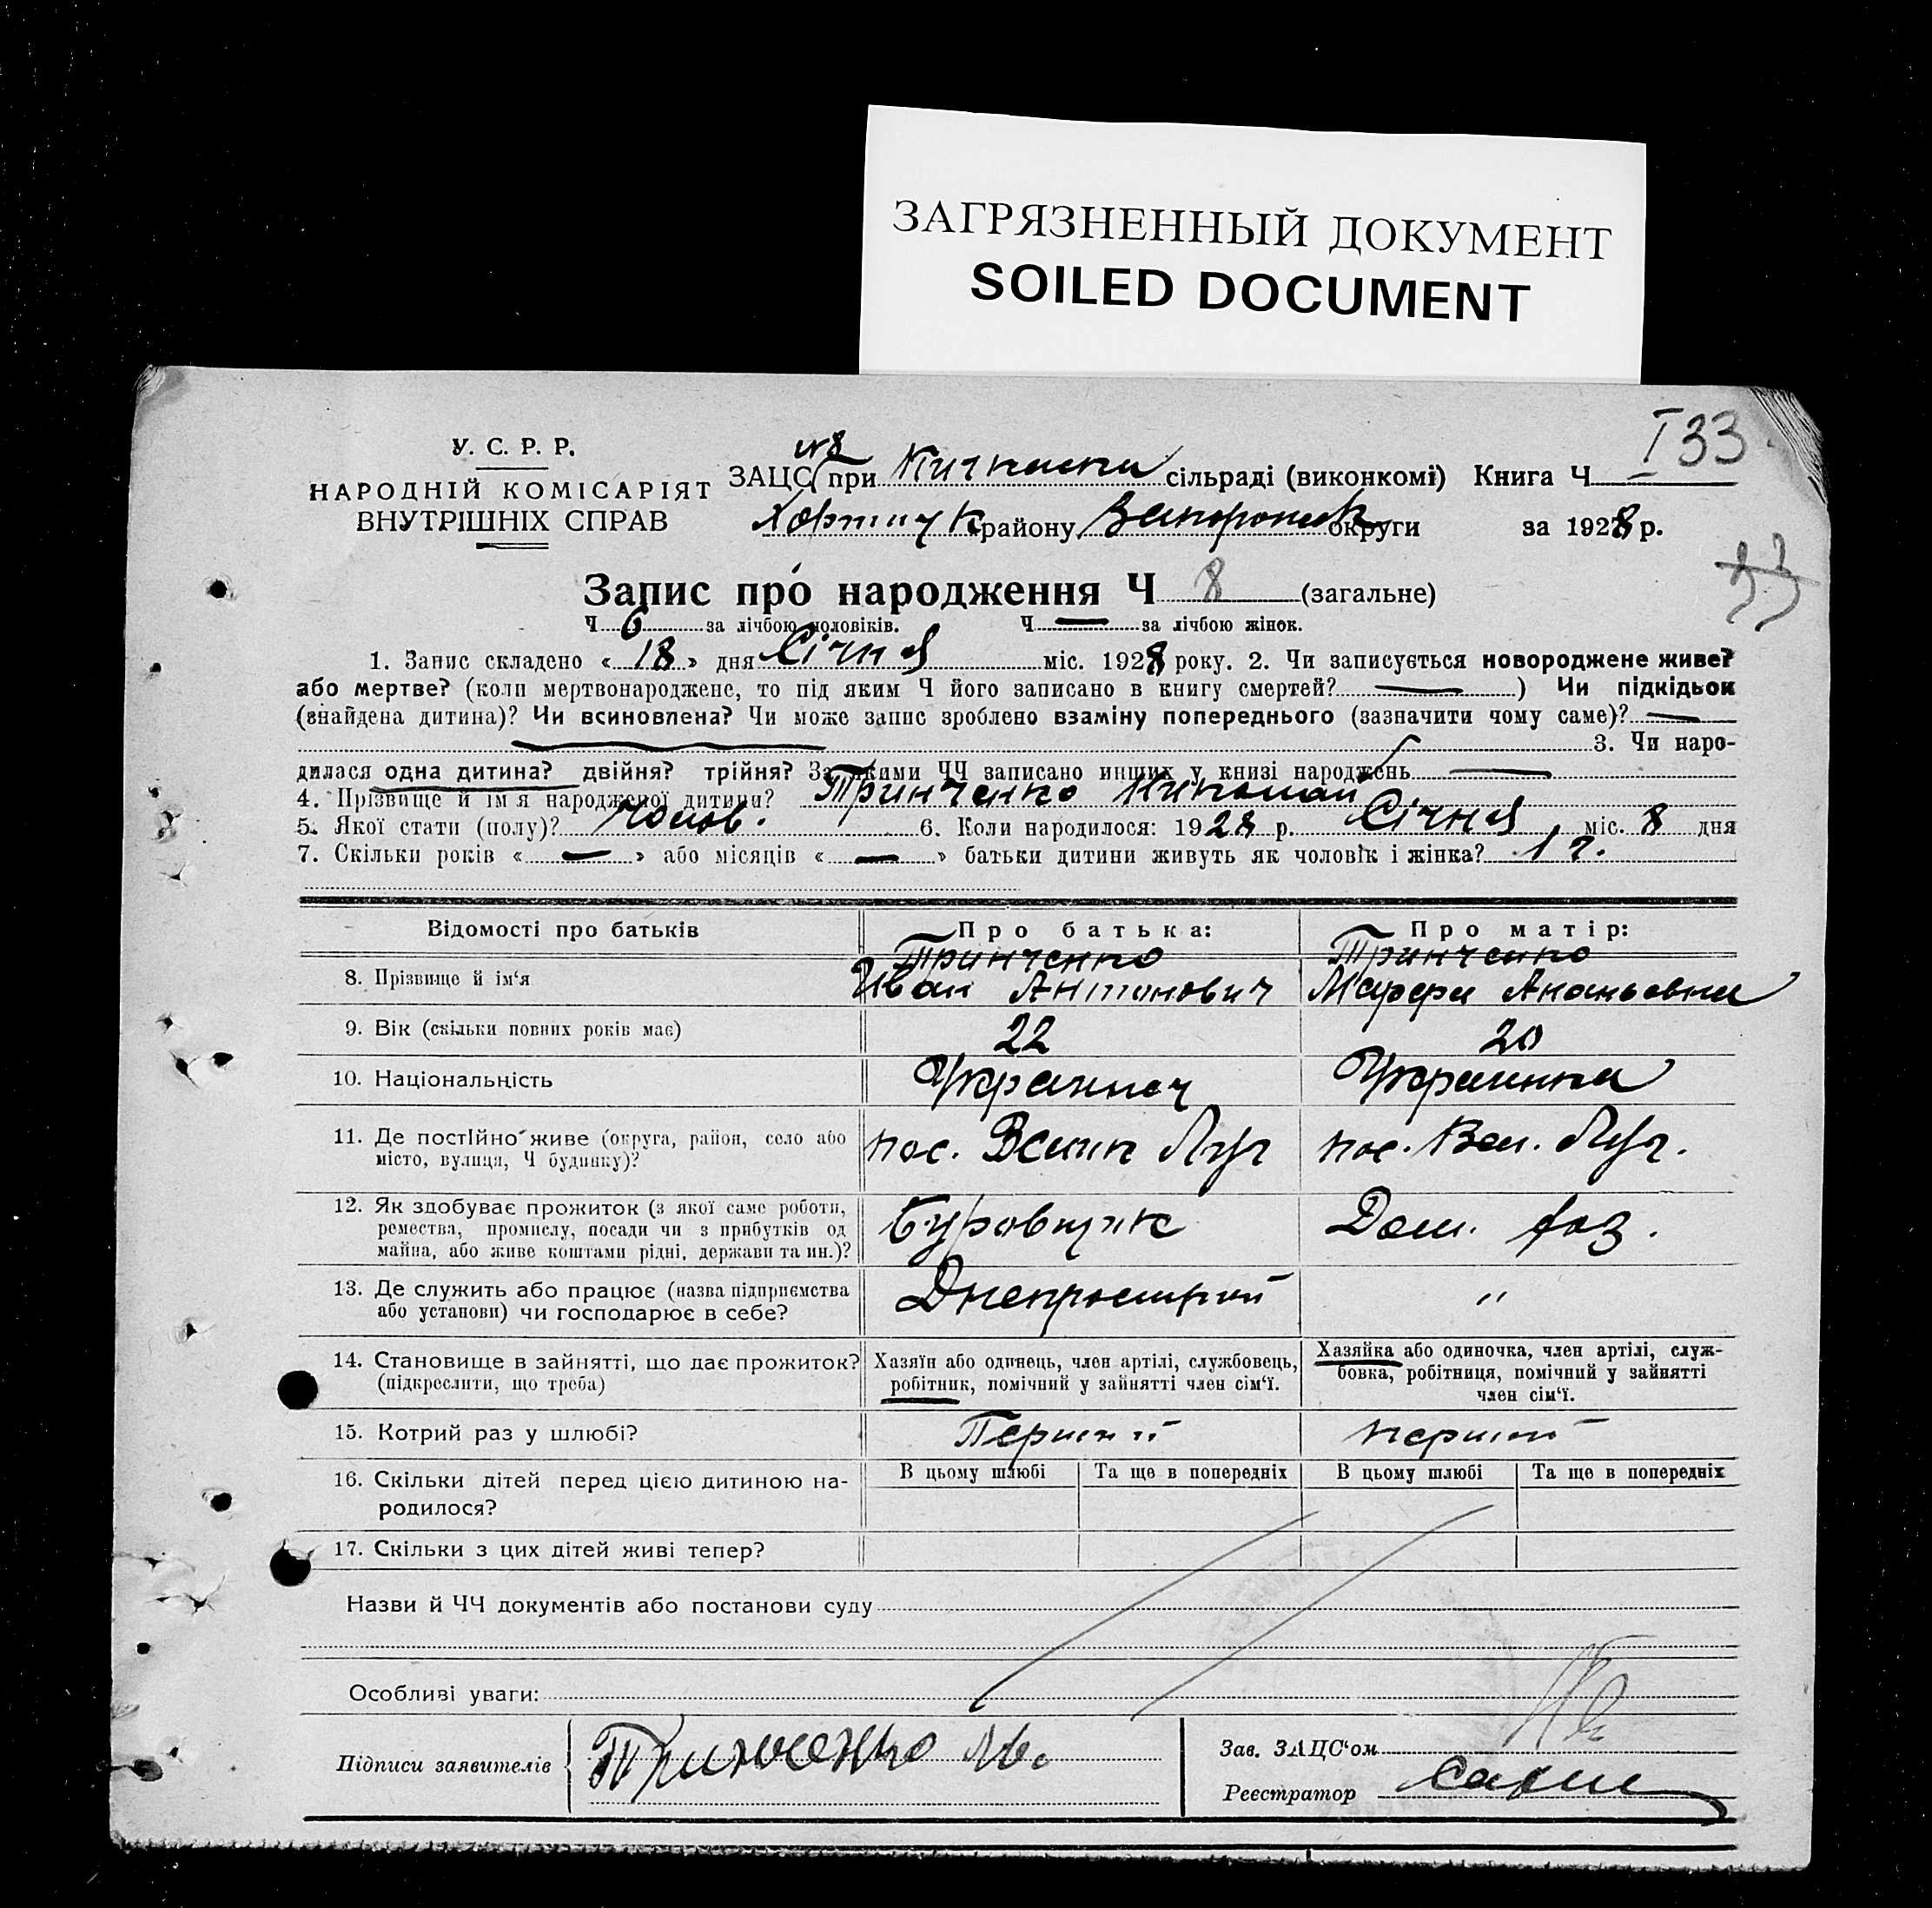 ЗАГРЯЗНЕННЫЙ ДОКУМЕНТ
SOILED DOCUMENT
I 33
У. С. Р. Р.
НАРОДНІЙ КОМІСАРІЯТ
ВНУТРІШНІХ СПРАВ
№8
ЗАЦС при Кичкаски сільраді (виконкомі) Книга Ч
Хортицьк району Запорожськ округи за 1928 р.
33
Запис про народження Ч 8 (загальне)
Ч 6 за лічбою чоловіків. Ч — за лічбою жінок.
1. Запис складено « 18 » дня Січня міс. 1928 року. 2. Чи записується новороджене живе?
або мертве? (коли мертвонароджене, то під яким Ч його записано в книгу смертей? — ) Чи підкідьок
(знайдена дитина)? Чи всиновлена? Чи може запис зроблено взаміну попереднього (зазначити чому саме)? —
3. Чи наро-
дилася одна дитина? двійня? трійня? За якими ЧЧ записано инших у книзі народжень —
4. Прізвище й ім'я народженої дитини? Тринченко Николай
5. Якої стати (полу)? чолов. 6. Коли народилося: 1928 р. Січня міс. 8 дня
7. Скільки років « — » або місяців « — » батьки дитини живуть як чоловік і жінка? 1 г.
Відомості про батьків
Про батька:
Про матір:
8. Прізвище й ім'я
Тринченко
Иван Антонович
Тринченко
Марфа Ананьевна
9. Вік (скільки повних років має)
22
20
10. Національність
Украинец
Украинка
11. Де постійно живе (округа, район, село або
місто, вулиця, Ч будинку)?
пос. Велик Луг
пос. Вел. Луг.
12. Як здобуває прожиток (з якої саме роботи,
ремества, промислу, посади чи з прибутків од
майна, або живе коштами рідні, держави та ин.)?
Буровщик
Дом. хоз.
13. Де служить або працює (назва підприємства
або установи) чи господарює в себе?
Днепрострой
"
14. Становище в зайнятті, що дає прожиток?
(підкреслити, що треба)
Хазяїн або одинець, член артілі, службовець,
робітник, помічний у зайнятті член сім'ї.
Хазяйка або одиночка, член артілі, служ-
бовка, робітниця, помічний у зайнятті
член сім'ї.
15. Котрий раз у шлюбі?
Перший
перший
16. Скільки дітей перед цією дитиною на-
родилося?
В цьому шлюбі
Та ще в попередніх
В цьому шлюбі
Та ще в попередніх
17. Скільки з цих дітей живі тепер?
Назви й ЧЧ документів або постанови суду
Особливі уваги:
Підписи заявителів
Тринченко
Зав. ЗАЦС'ом
Реєстратор